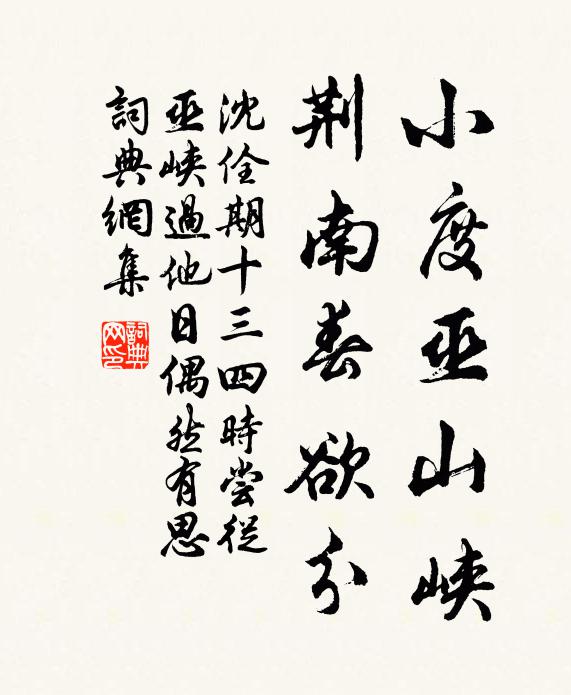 小度巫山峽
荆南春欲分
沈佺期十三四時嘗從
巫峽過他日偶然有思
詞典網集
詞典网印